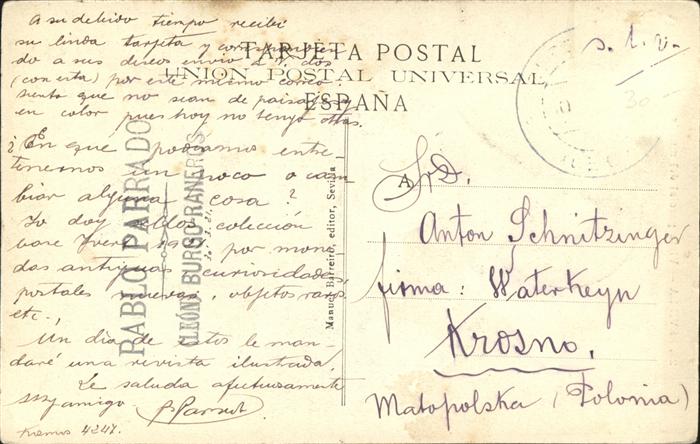 A su debido tiempo recibi
su linda tarjeta y correspondien
do a sus deseos envio a V. dos
(con esta) por este mismo correo.
siento que no sean de paisajes
en color pues hoy no tengo otras.
¿En que podriamos entre
tenernos un poco o cam
biar alguna cosa?
Yo doy sellos colección
base Yvert por mone
das antiguas curiosidades,
postales nuevas, objetos raros,
etc.,
Un dia de estos le man
daré una revista ilustrada.
Le saluda afectuosamente
ssyamigo P. Parrado
Kromos 4247.
PABLO PARRADO
(LEÓN) BURGO RANEROS
TARJETA POSTAL
UNION POSTAL UNIVERSAL
ESPAÑA
Manuel Barreiro, editor, Sevilla
s. l. v.
30
A Srd.
Anton Schnitzinger
firma: Waterkeyn
Krosno.
Matopolska (Polonia)